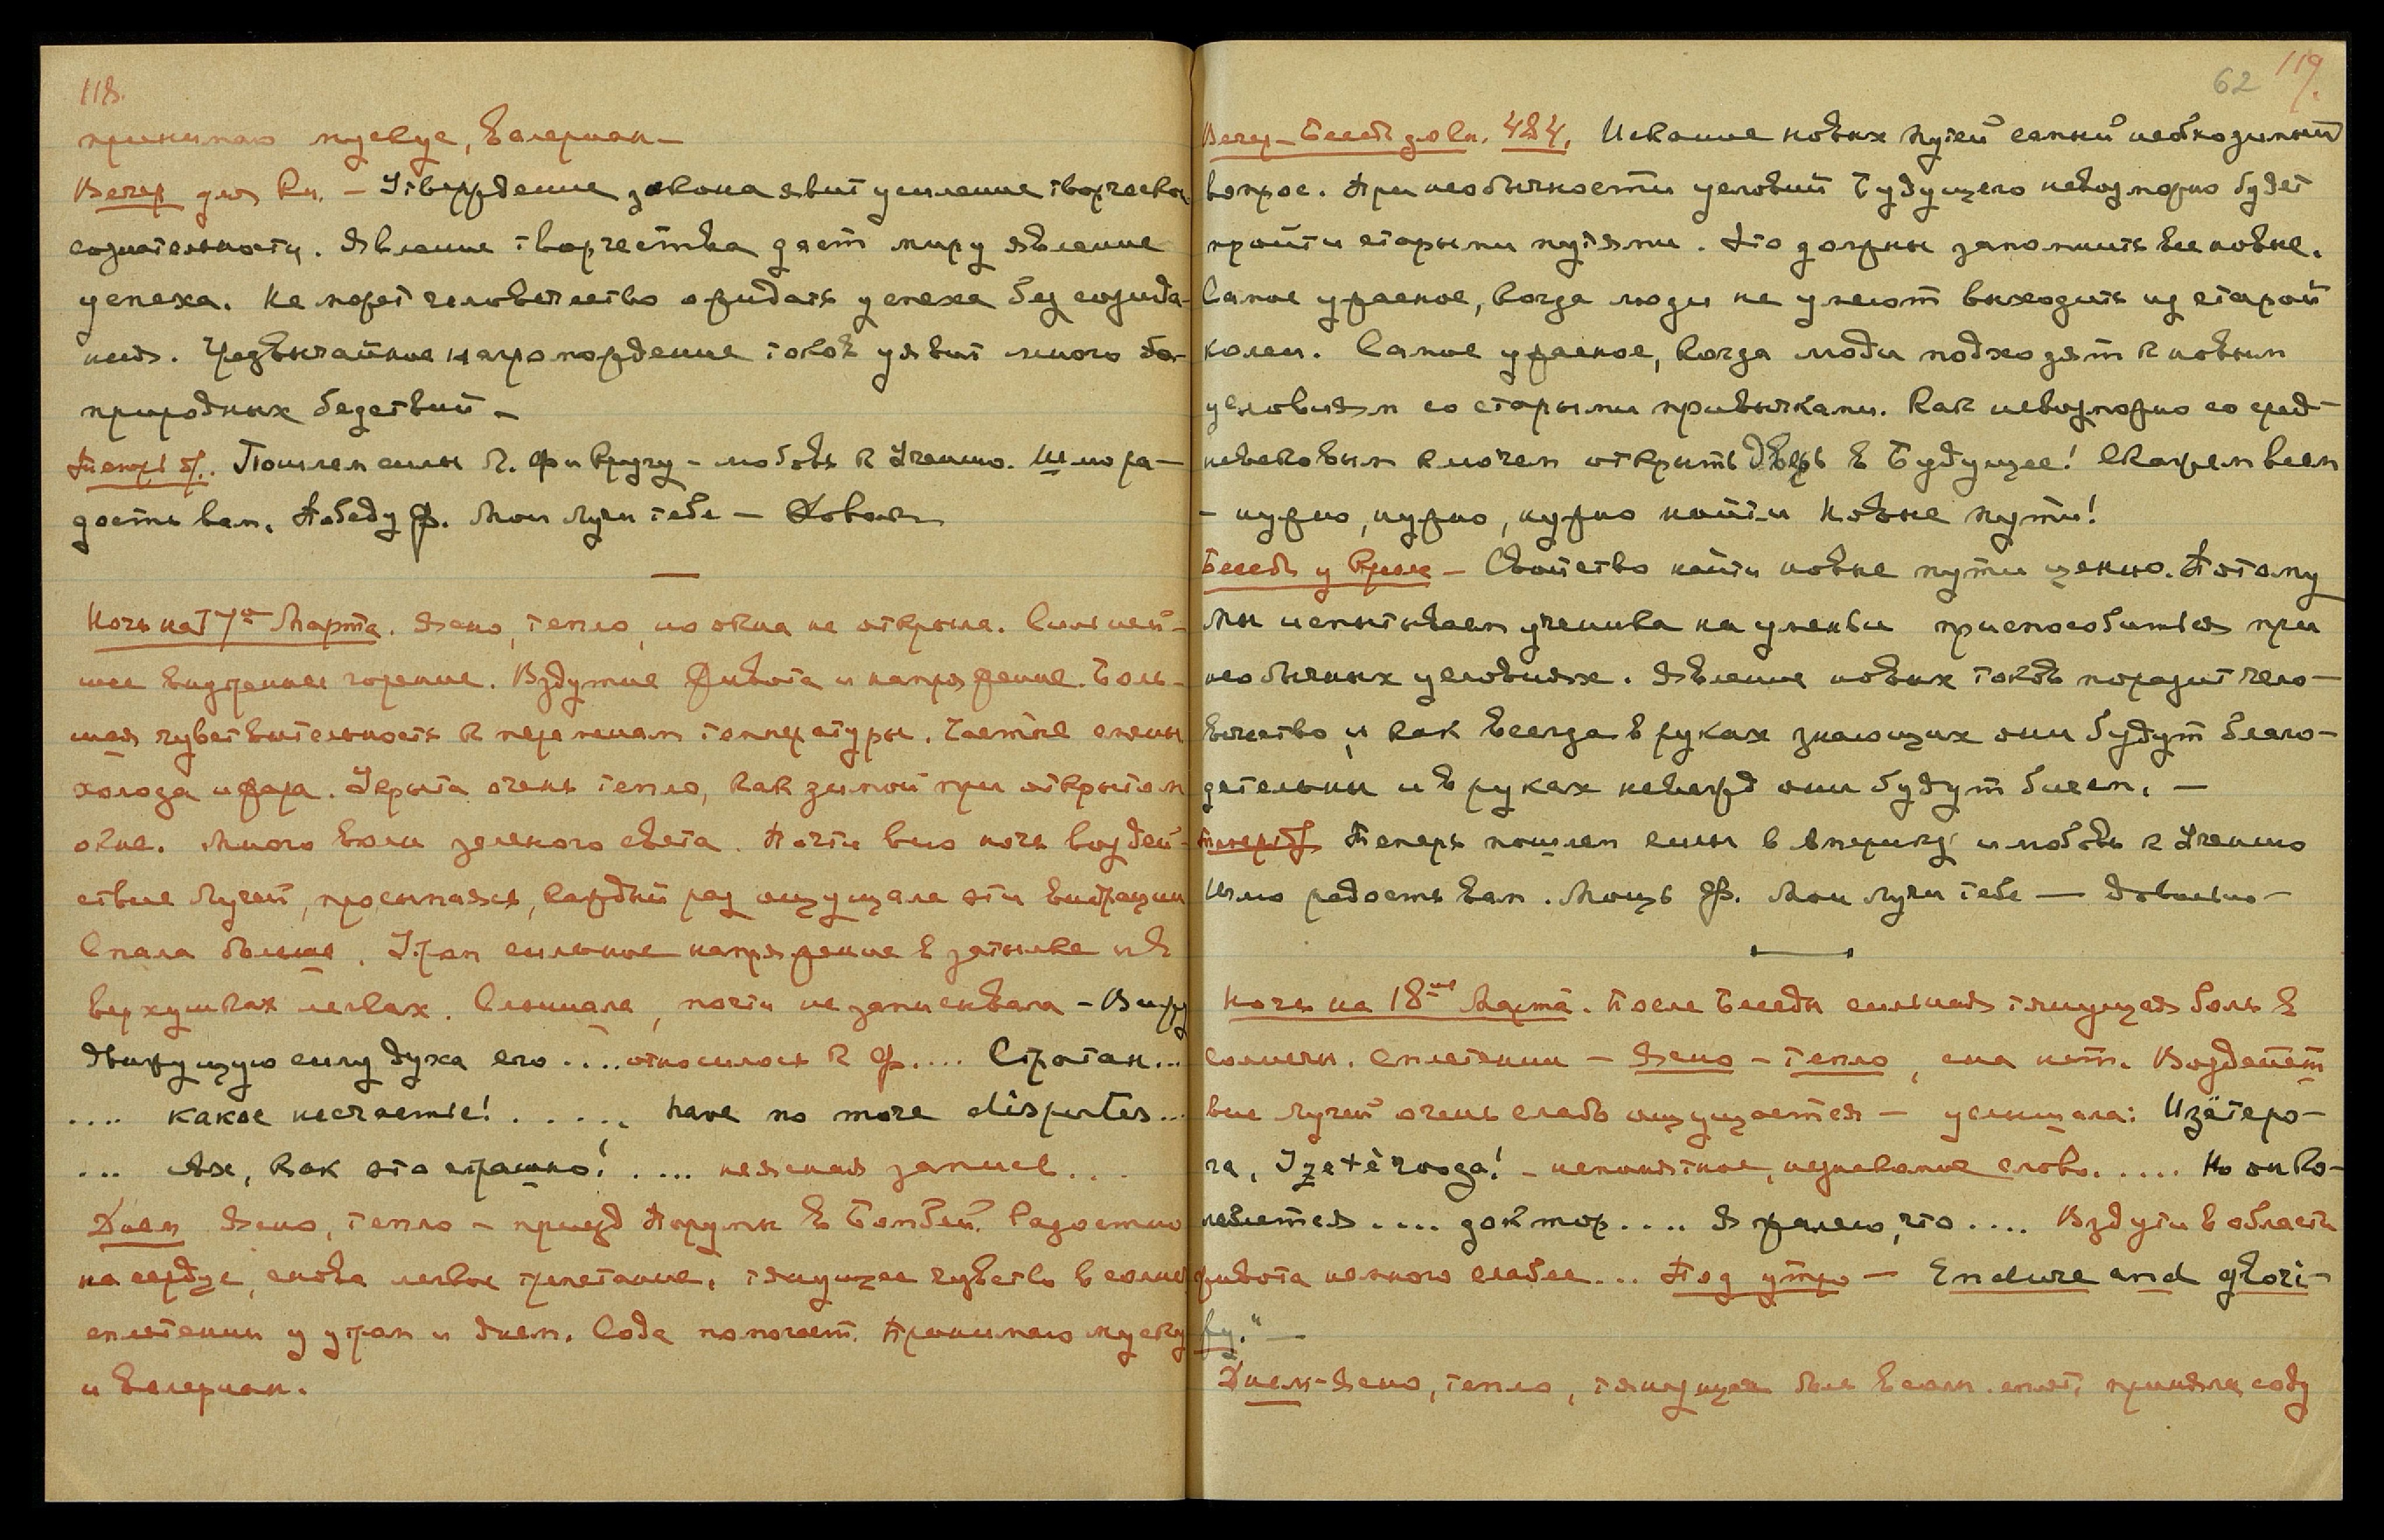 118.
принимаю мускус, Валериан —
Вечер для Кн. — Утверждение закона явит усиление творческой
сознательности. Явление творчества дает миру явление
успеха. Не может человечество ожидать успеха без созида-
ния. Чрезвычайное нагромождение токов уявит много
природных бедствий —
Теперь б. Пошлем силы Л. Ф и Кругу — любовь к Учению. Шлю ра-
дость вам. Победу Ф. Мои Лучи тебе — Довольно
Ночь на 17ое Марта. Ясно, тепло, но окна не открыла. Сильней-
шее внутреннее горение. Вздутие живота и напряжение. Боль-
шая чувствительность к переменам температуры. Частые смены
холода и жара. Укрыта очень тепло, как зимой при открытом
окне. Много было зеленого света. Почти всю ночь воздей-
ствие Лучей, просыпаясь, каждый раз ощущала эти вибрации
Спала больше. Утром сильное напряжение в затылке и в
верхушках легких. Слышала, почти не записывала — Вижу
движущую силу духа его .... относилось к Ф.... Строган...
.... какое несчастье! ..... have no more disputes...
... Ах, как это страшно! .... неясная запись...
Днем Ясно, тепло — приезд Порумы в Бомбей. Радостно
на сердце, снова легкое трепетание, тянущее чувство в солнеч
сплетении утром и днем. Сода помогает. Принимаю мускус
и Валериан.
62 119.
Вечер — Беседа для Кн. 484. Искание новых путей самый необходимый
вопрос. При необычности условий Будущего невозможно будет
пройти старыми путями. Это должны запомнить все новые.
Самое ужасное, когда люди не умеют выходить из старой
колеи. Самое ужасное, когда люди подходят к новым
условиям со старыми привычками. Как невозможно со сред-
невековым ключем открыть Дверь в Будущее! Скажем всем
— нужно, нужно, нужно найти Новые пути!
Беседа у Круга — Свойство найти новые пути ценно. Потому
Мы испытываем ученика на умении приспособиться при
необычных условиях. Явление новых токов поразит чело-
вечество и как всегда в руках знающих они будут благо-
детельны и в руках невежд они будут бичем. —
Теперь б. Теперь пошлем силы в Америку и любовь к Учению
Шлю радость вам. Мощь Ф. Мои Лучи тебе — Довольно —
Ночь на 18ое Марта. После Беседы сильная тянущая боль в
солнечн. сплетении — Ясно — тепло, сна нет. Воздейст
вие Лучей очень слабо ощущается — услышала: Изётеро-
га, непонятное, слово. .... Но он ко-
леблется .... доктор .... Я жалею, что .... Вздутие в области
живота немного слабее... Под утро — Endure and glori-
fy." —
Днем — Ясно, тепло, тянущая боль в солн. сплет. приняла соду